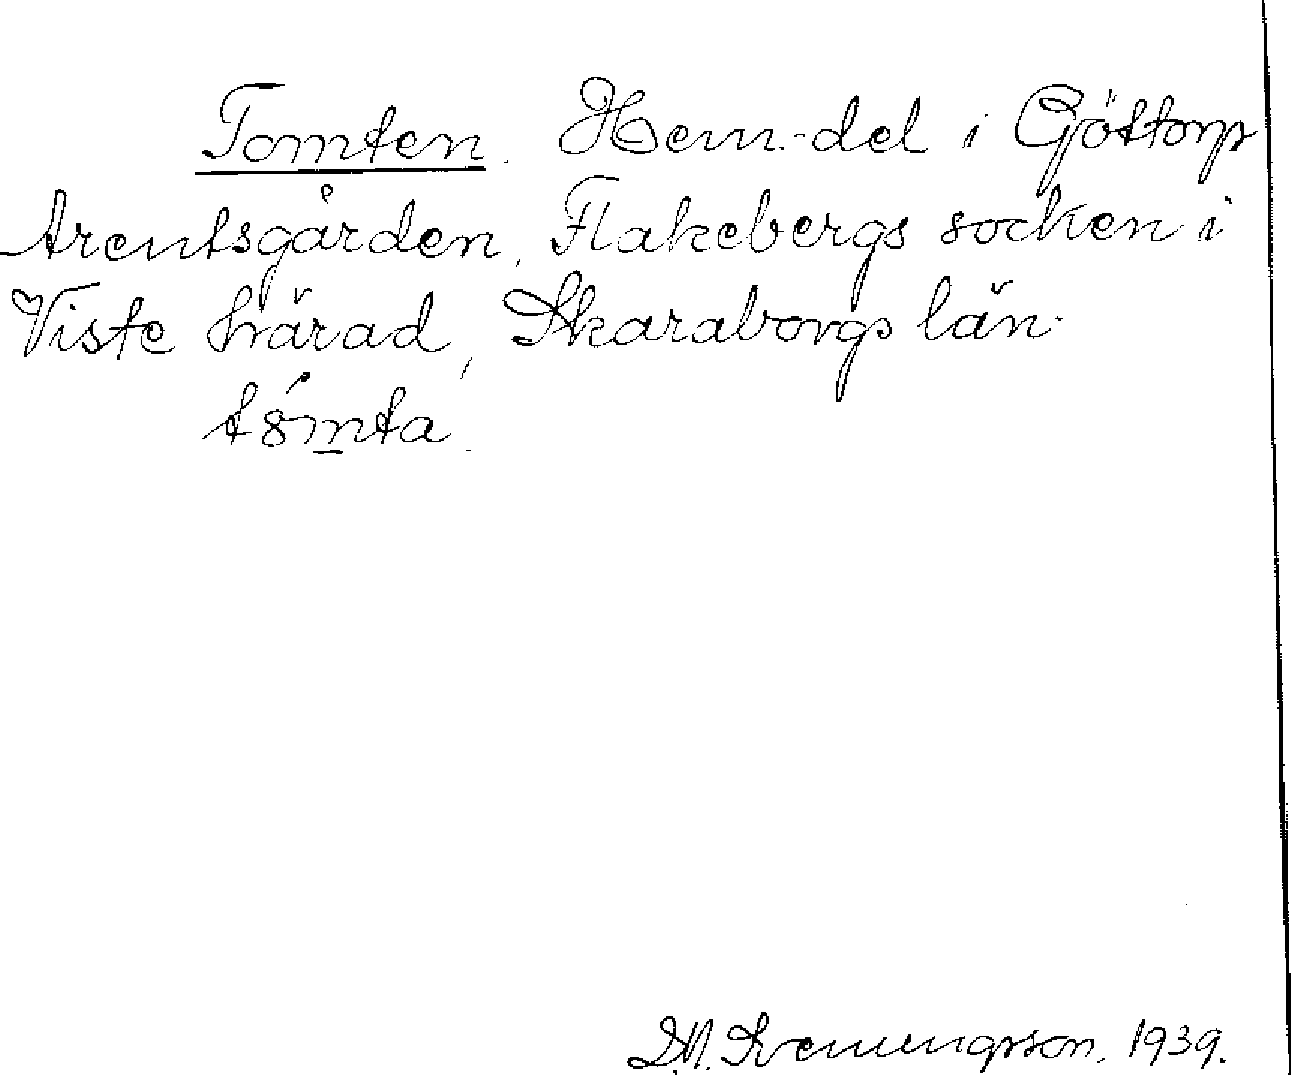 Tomten. Hem.-del i Göttorp
Arentsgården, Flakebergs socken i
Viste härad, Skaraborgs län.
tómta.
D.N. Svenningsson. 1939.